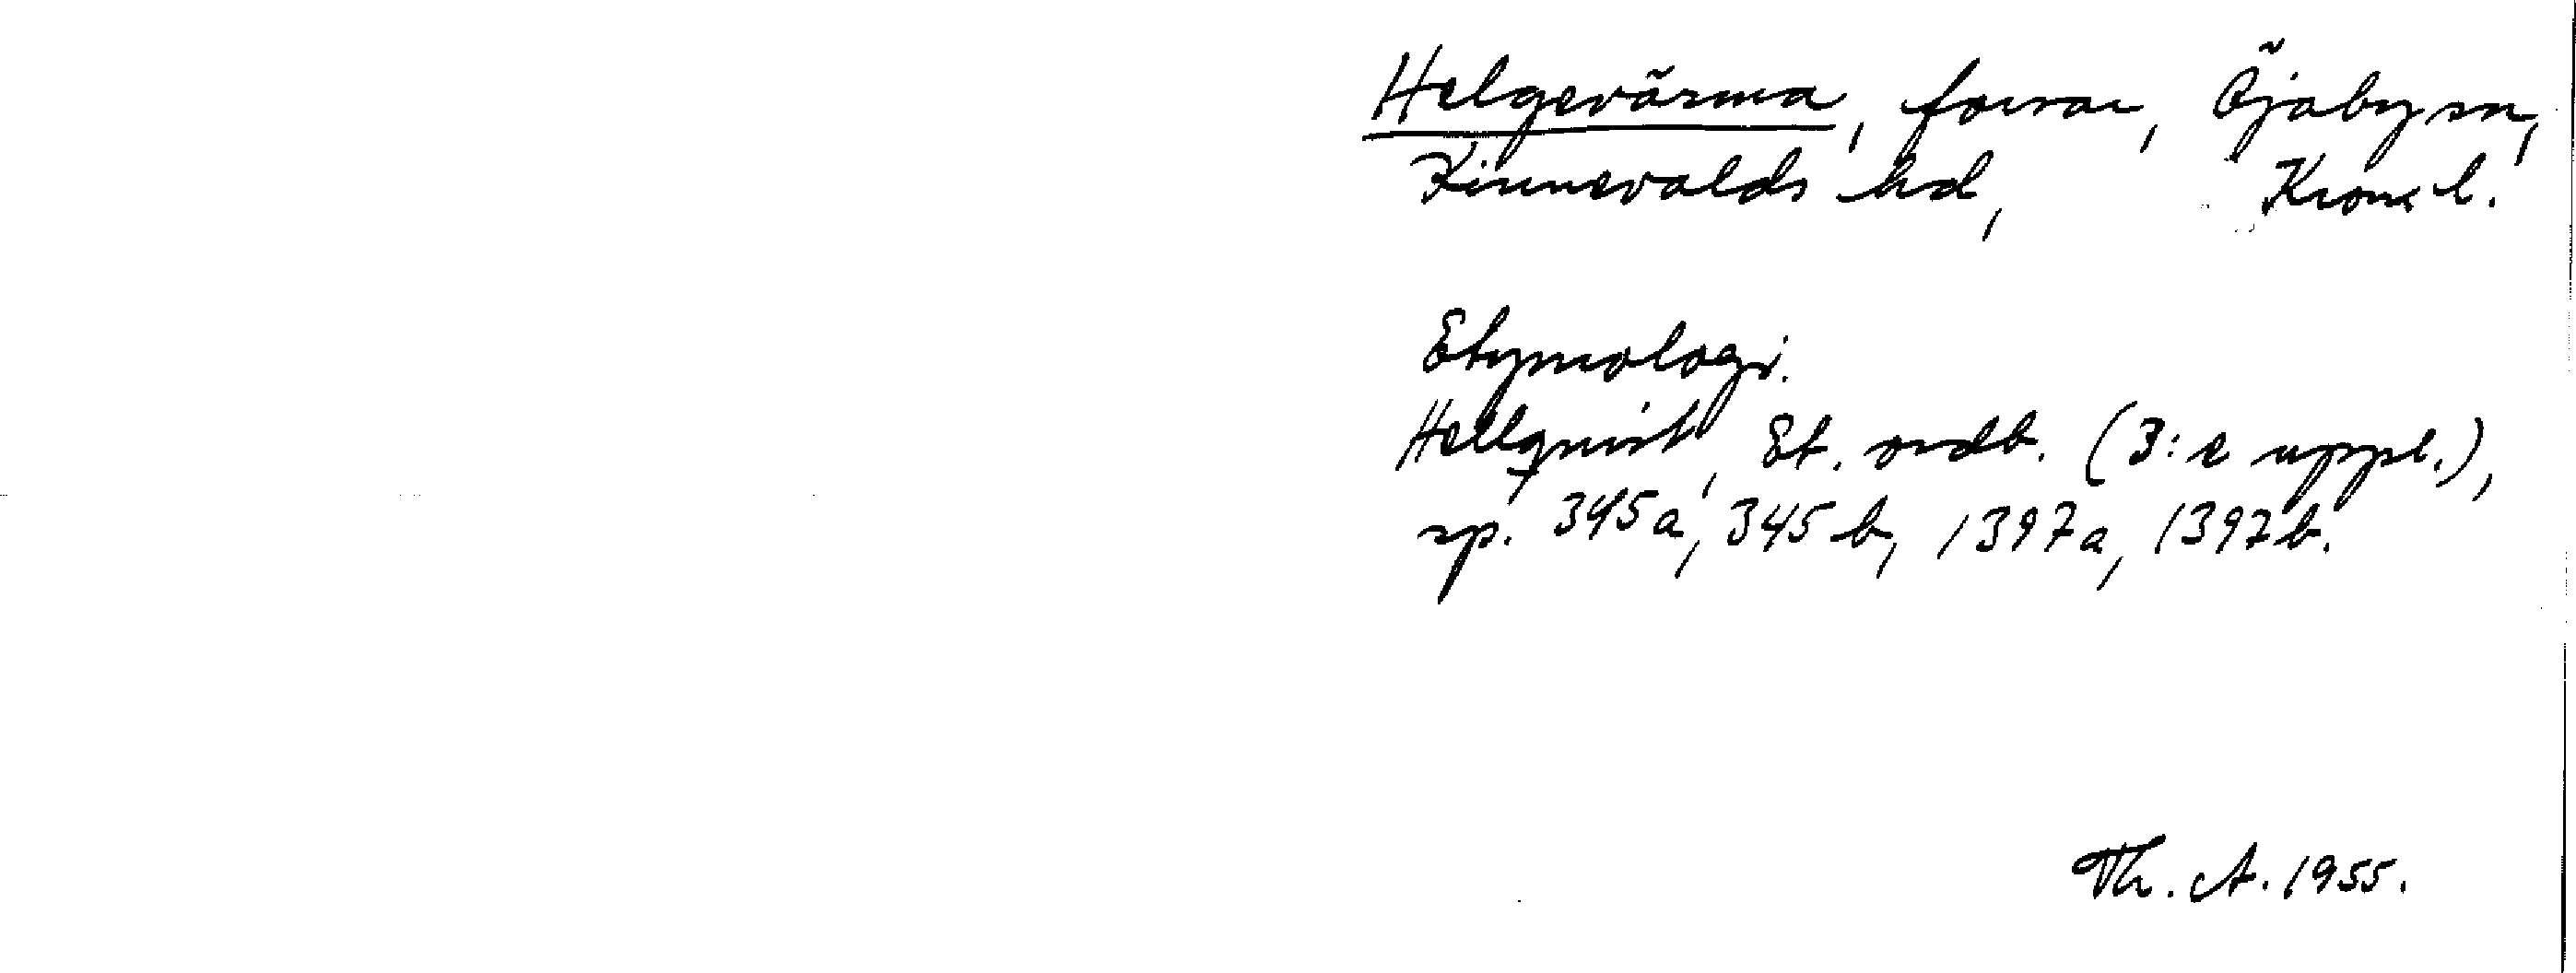 Helgevärma, forsar, Öjaby sn,
Kinnevalds hd, Kron. l.
Etymologi.
Hellquist, Et. ordb. (3:e uppl.),
sp. 345a, 345b, 1397a, 1397b.
Th. A. 1955.